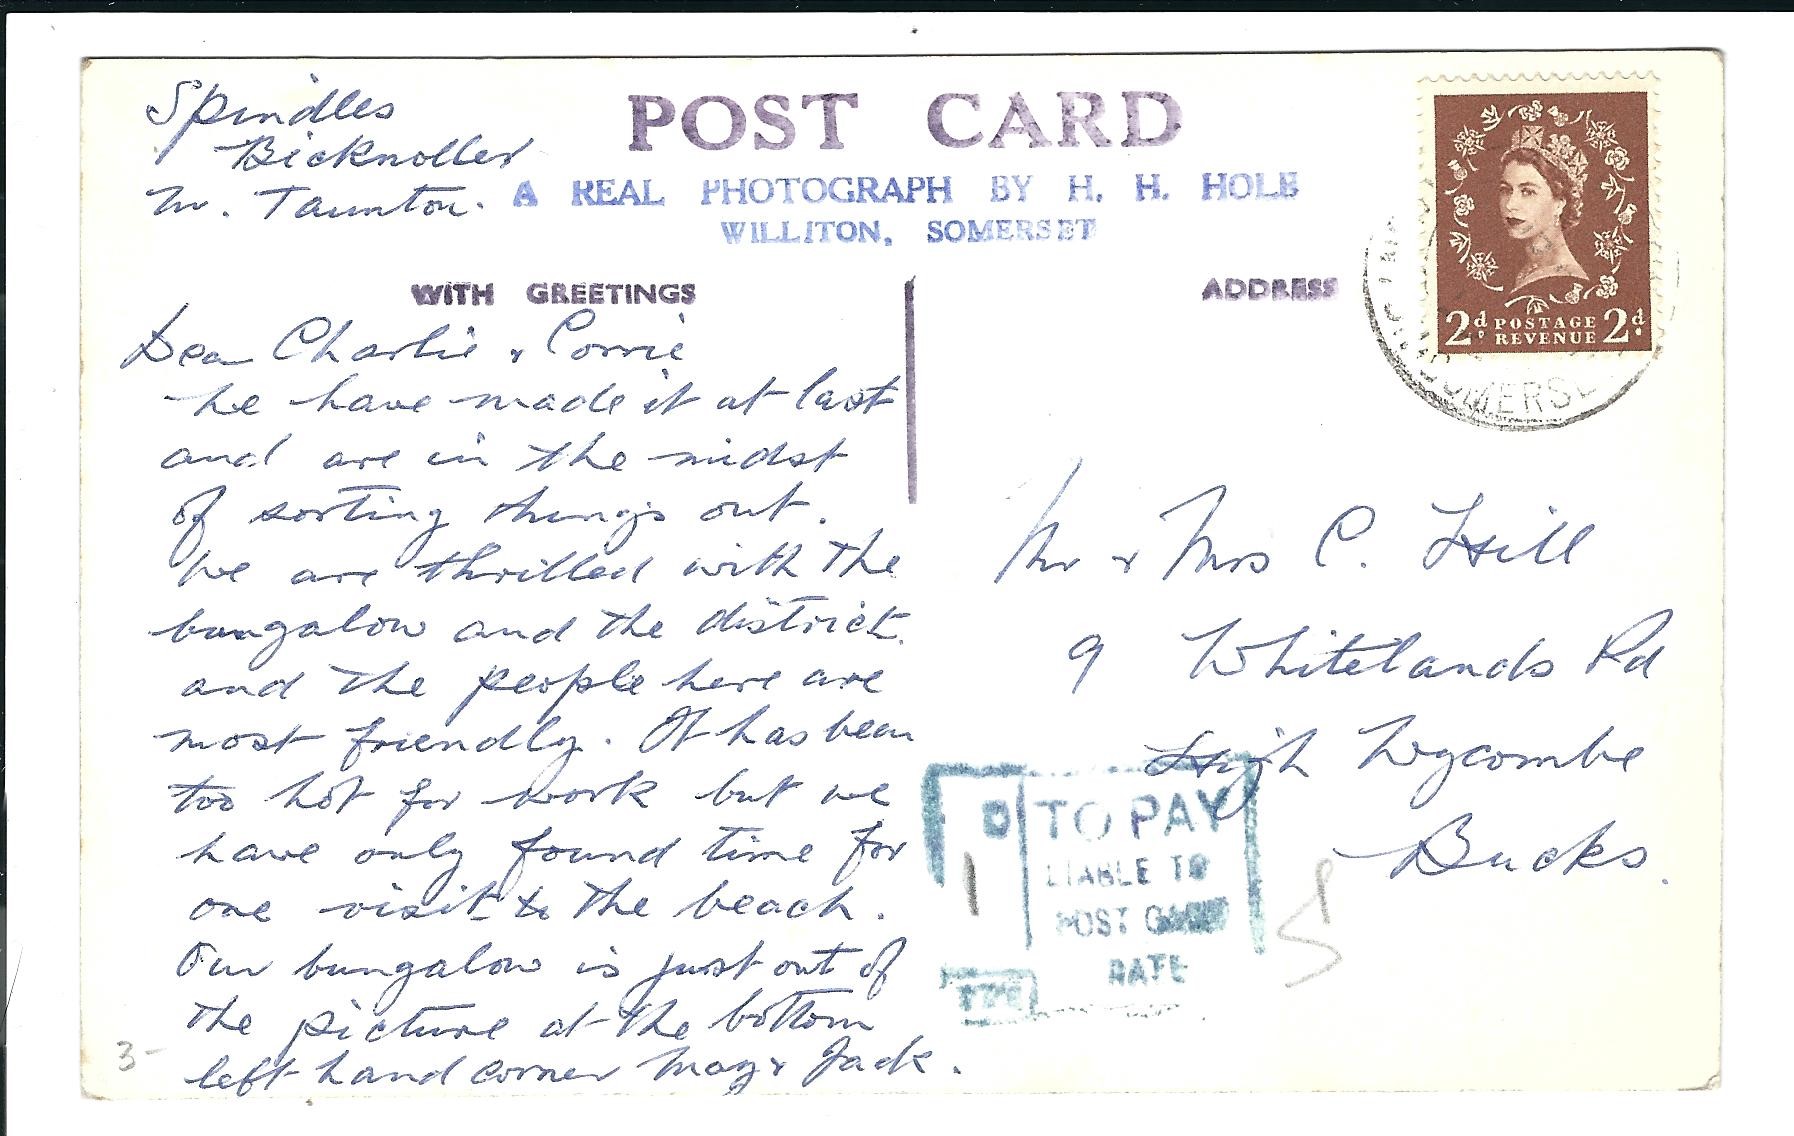 Spindles
Bicknoller
Nr. Taunton.
POST CARD
A REAL PHOTOGRAPH BY H. H. HOLE
WILLITON, SOMERSET
WITH GREETINGS
Dear Charlie & Corrie
We have made it at last
and are in the midst
of sorting things out.
We are thrilled with the
bungalow and the district.
and the people here are
most friendly. It has been
too hot for work but we
have only found time for
one visit to the beach.
Our bungalow is just out of
the picture at the bottom
left hand corner May & Jack.
3-
ADDRESS
2d POSTAGE 2d
REVENUE
SOMERSE
Mr & Mrs C. Hill
9 Whitelands Rd
High Wycombe
Bucks.
1 D
TO PAY
LIABLE TO
POST CARD
RATE